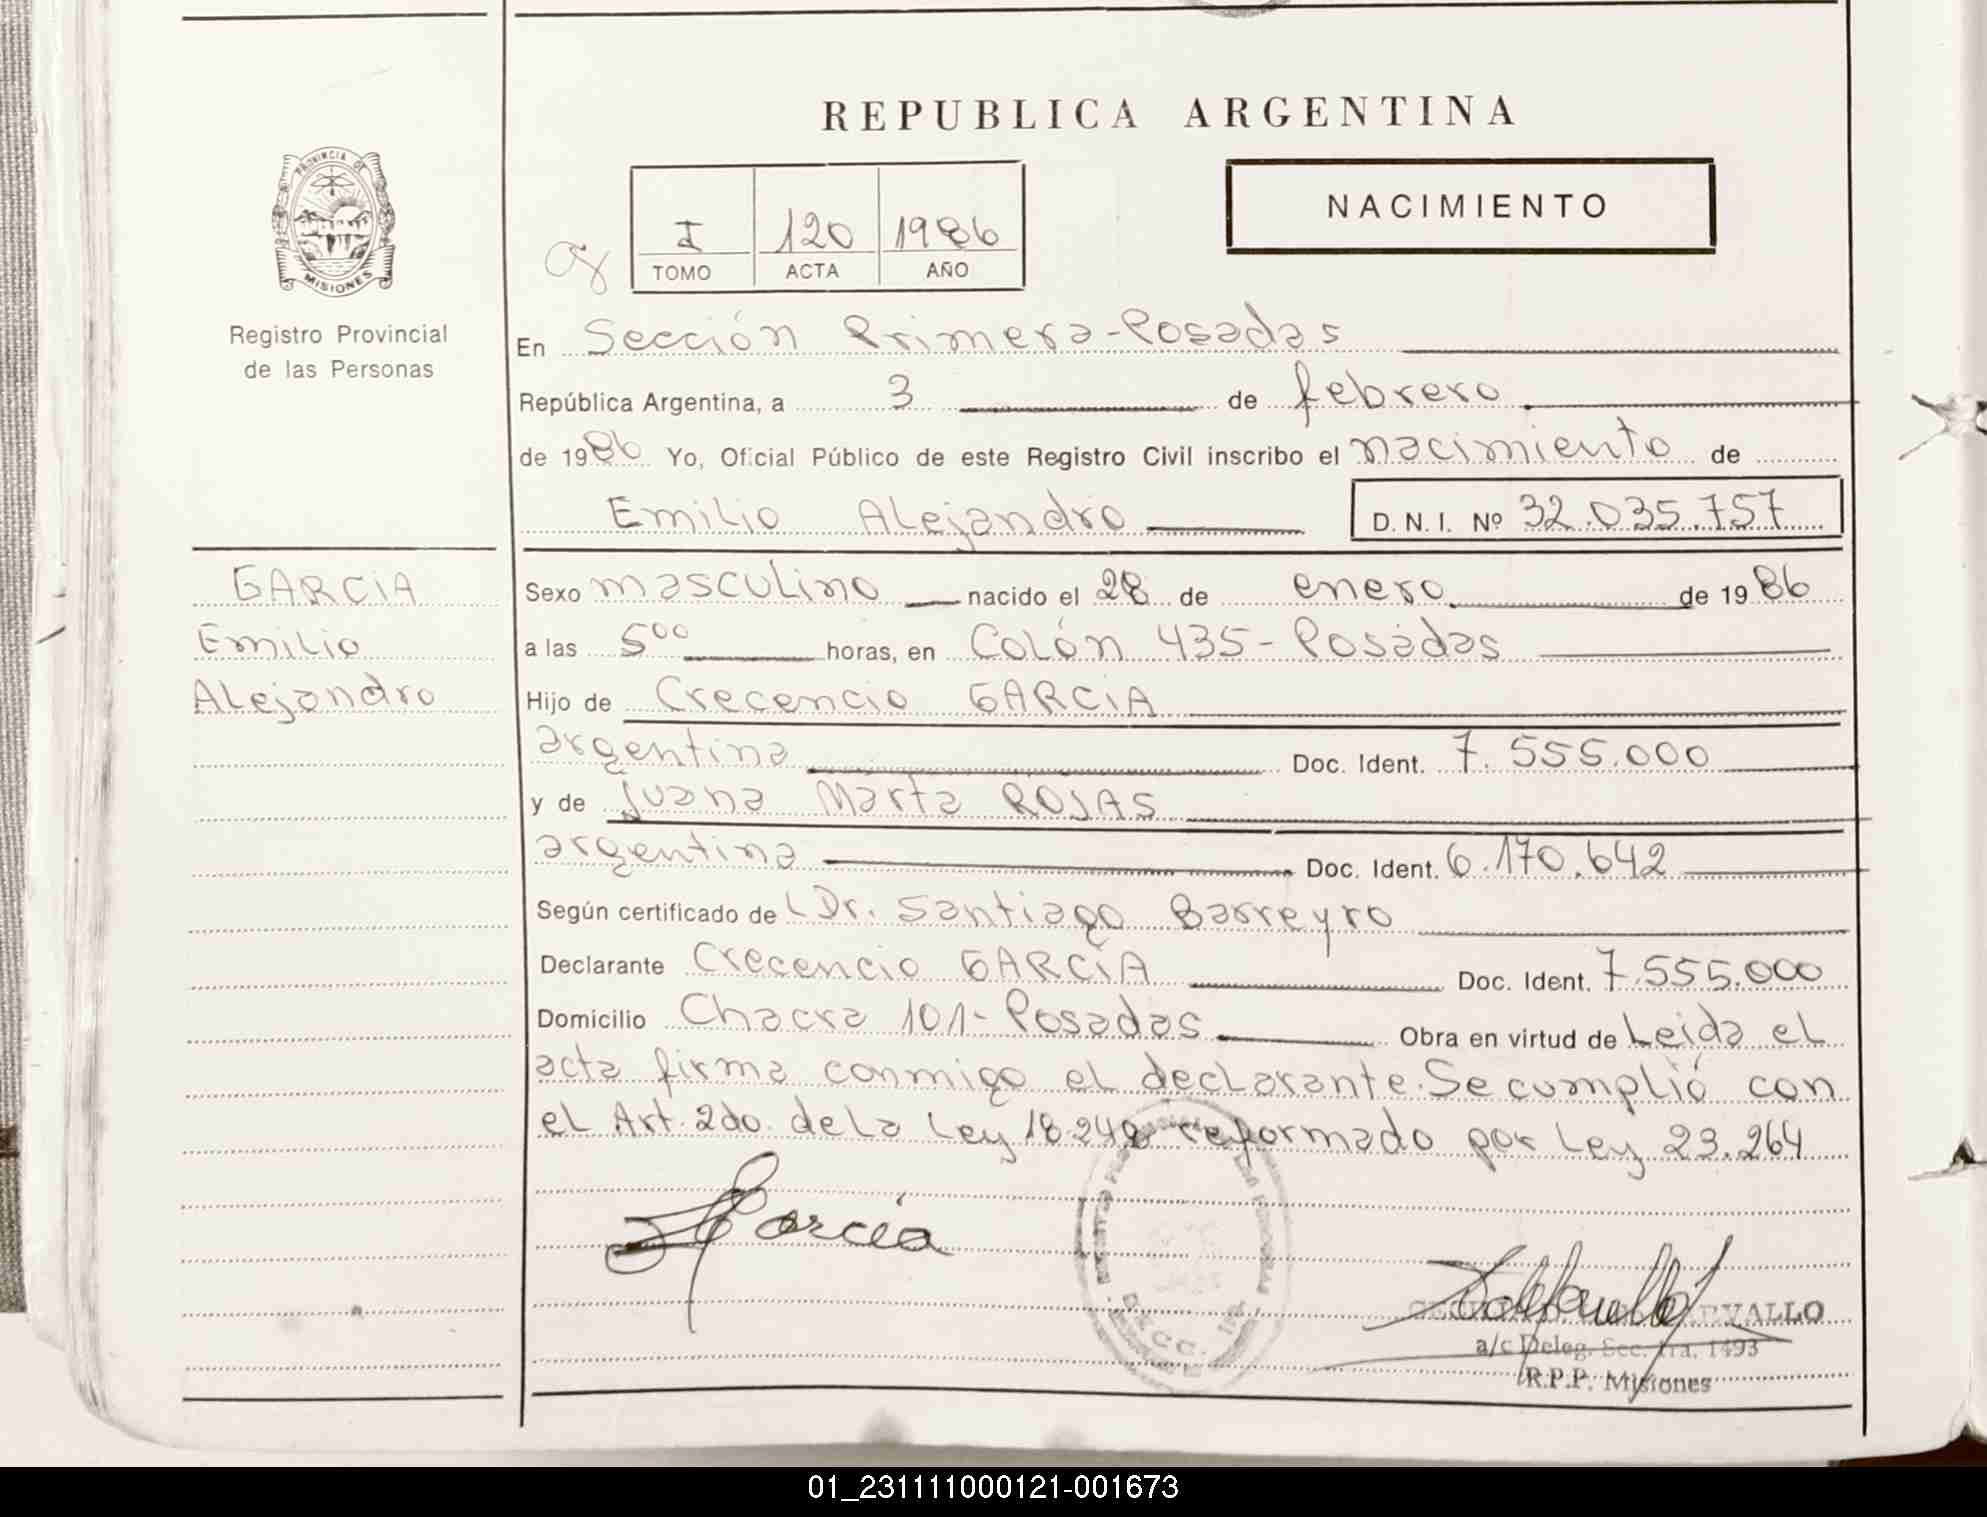 REPUBLICA ARGENTINA
PROVINCIA DE
MISIONES
Registro Provincial
de las Personas
I 120 1986
TOMO ACTA AÑO
NACIMIENTO
En Sección Primera-Posadas
República Argentina, a 3 de febrero
de 1986 Yo, Oficial Público de este Registro Civil inscribo el nacimiento de
Emilio Alejandro D.N.I. Nº 32.035.757
GARCIA
Emilio
Alejandro
Sexo masculino nacido el 28 de enero de 1986
a las 5⁰⁰ horas, en Colón 435-Posadas
Hijo de Crecencio GARCIA
argentina Doc. Ident. 7.555.000
y de Juana Marta ROJAS
argentina Doc. Ident. 6.170.642
Según certificado de Dr. Santiago Barreyro
Declarante Crecencio GARCIA Doc. Ident. 7.555.000
Domicilio Chacra 101-Posadas Obra en virtud de Leida el
acta firma conmigo el declarante. Se cumplió con
el Art. 2do. de la Ley 18.248 reformado por Ley 23.264
Garcia
a/c Deleg. Sec. 1ra. 1493
R.P.P. Misiones
01_231111000121-001673